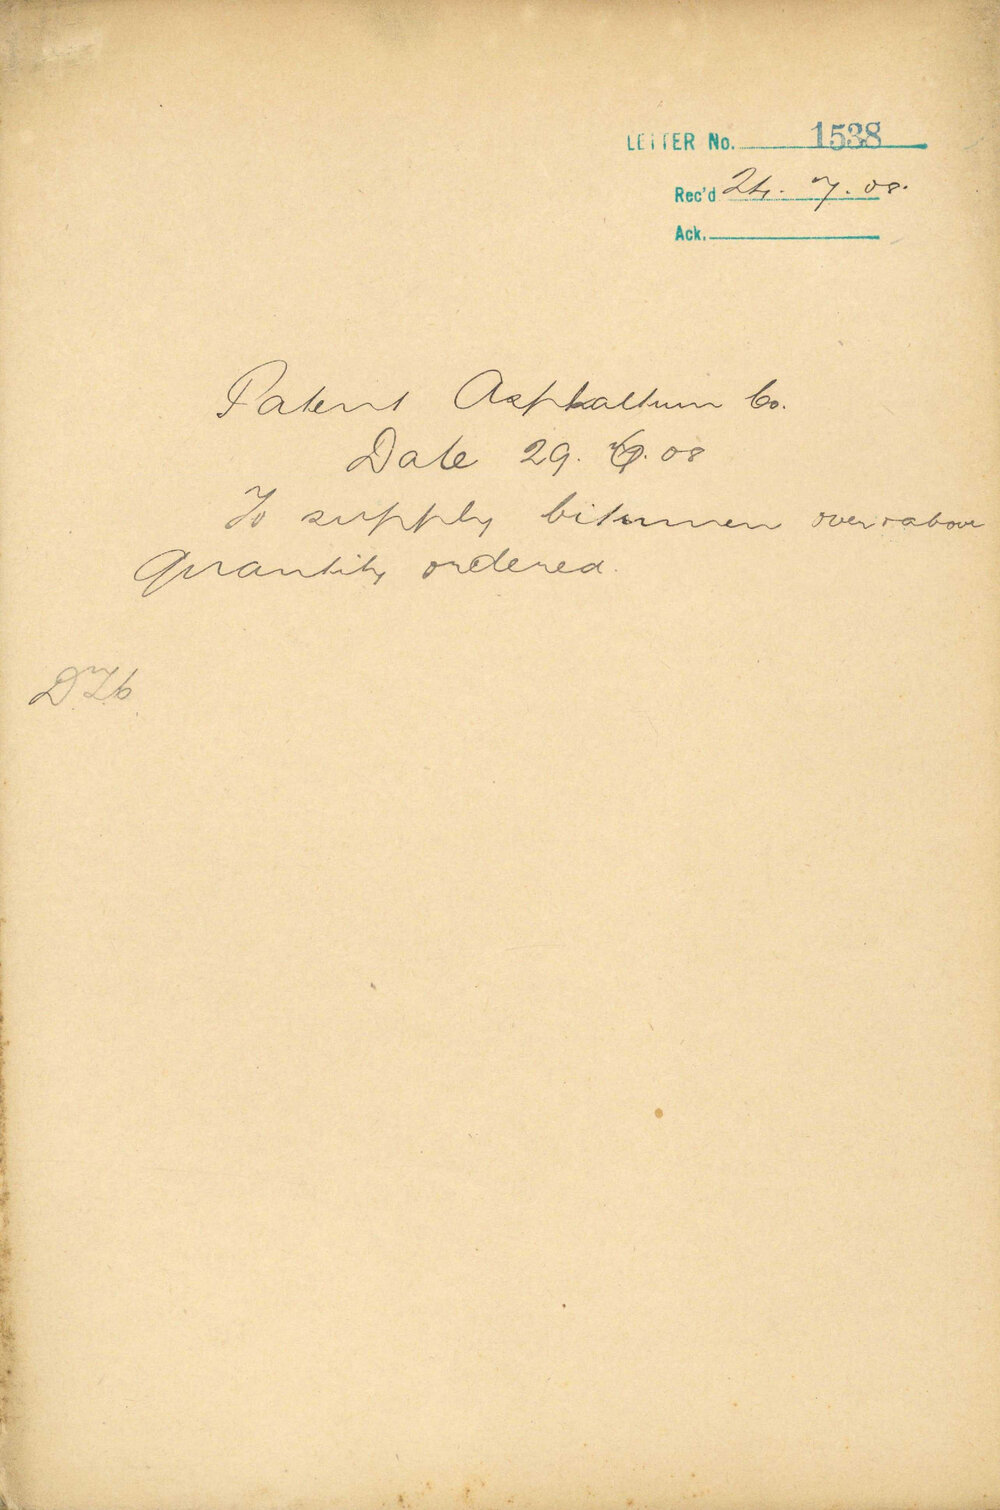 LETTER No. 1538
Rec'd 24. 7. 08.
Ack.
Patent Asphaltum Co.
Date 29. 08
To supply bitumen over & above
quantity ordered.